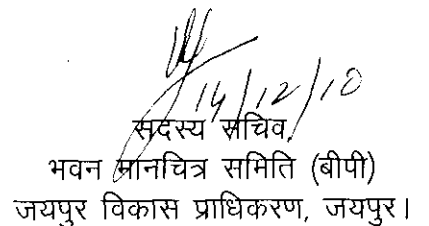 14/12/10
सदस्य सचिव,
भवन मानचित्र समिति (बीपी)
जयपुर विकास प्राधिकरण, जयपुर।